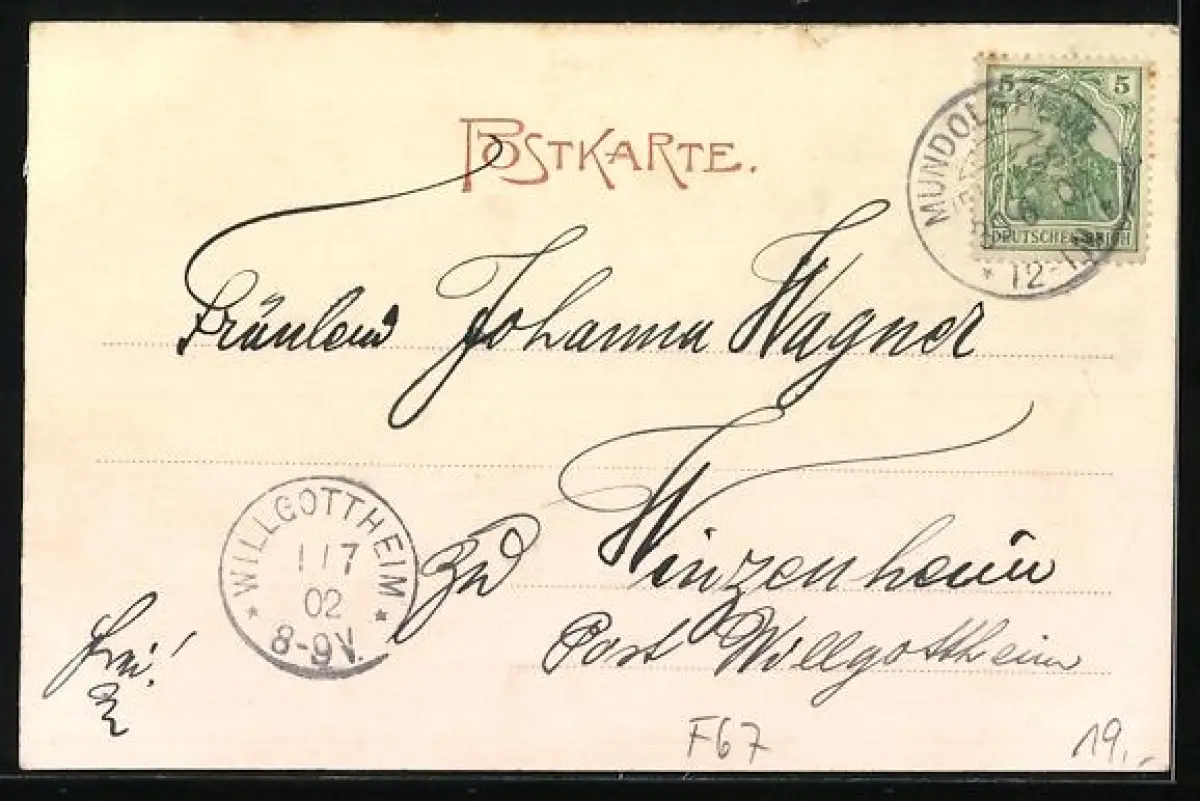 POSTKARTE.
5 5
DEUTSCHES REICH
MUNDOL
* 12-1
Fräulein Johanna Wagner
WILLGOTTHEIM
1/7
02
8-9V.
Zu Winzenheim
Post Willgottheim
frei!
F67
19.-